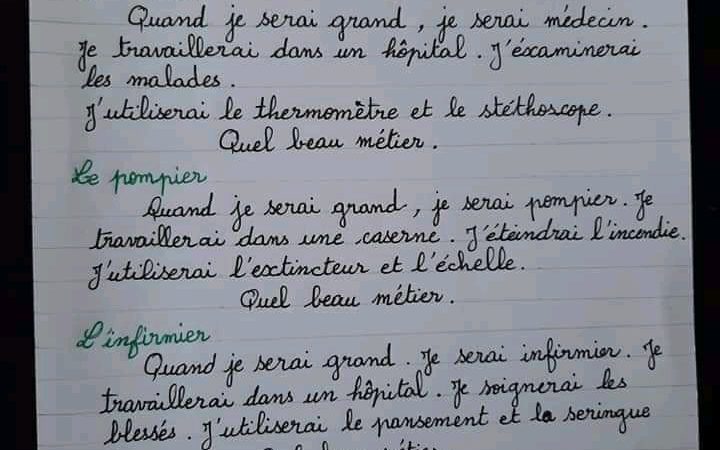 Quand je serai grand, je serai médecin.
Je travaillerai dans un hôpital. J'éxaminerai
les malades.
J'utiliserai le thermomètre et le stéthoscope.
Quel beau métier.
Le pompier
Quand je serai grand, je serai pompier. Je
travaillerai dans une caserne. J'éteindrai l'incendie.
J'utiliserai l'extincteur et l'échelle.
Quel beau métier.
L'infirmier
Quand je serai grand. Je serai infirmier. Je
travaillerai dans un hôpital. Je soignerai les
blessés. J'utiliserai le pansement et la seringue
Quel beau métier